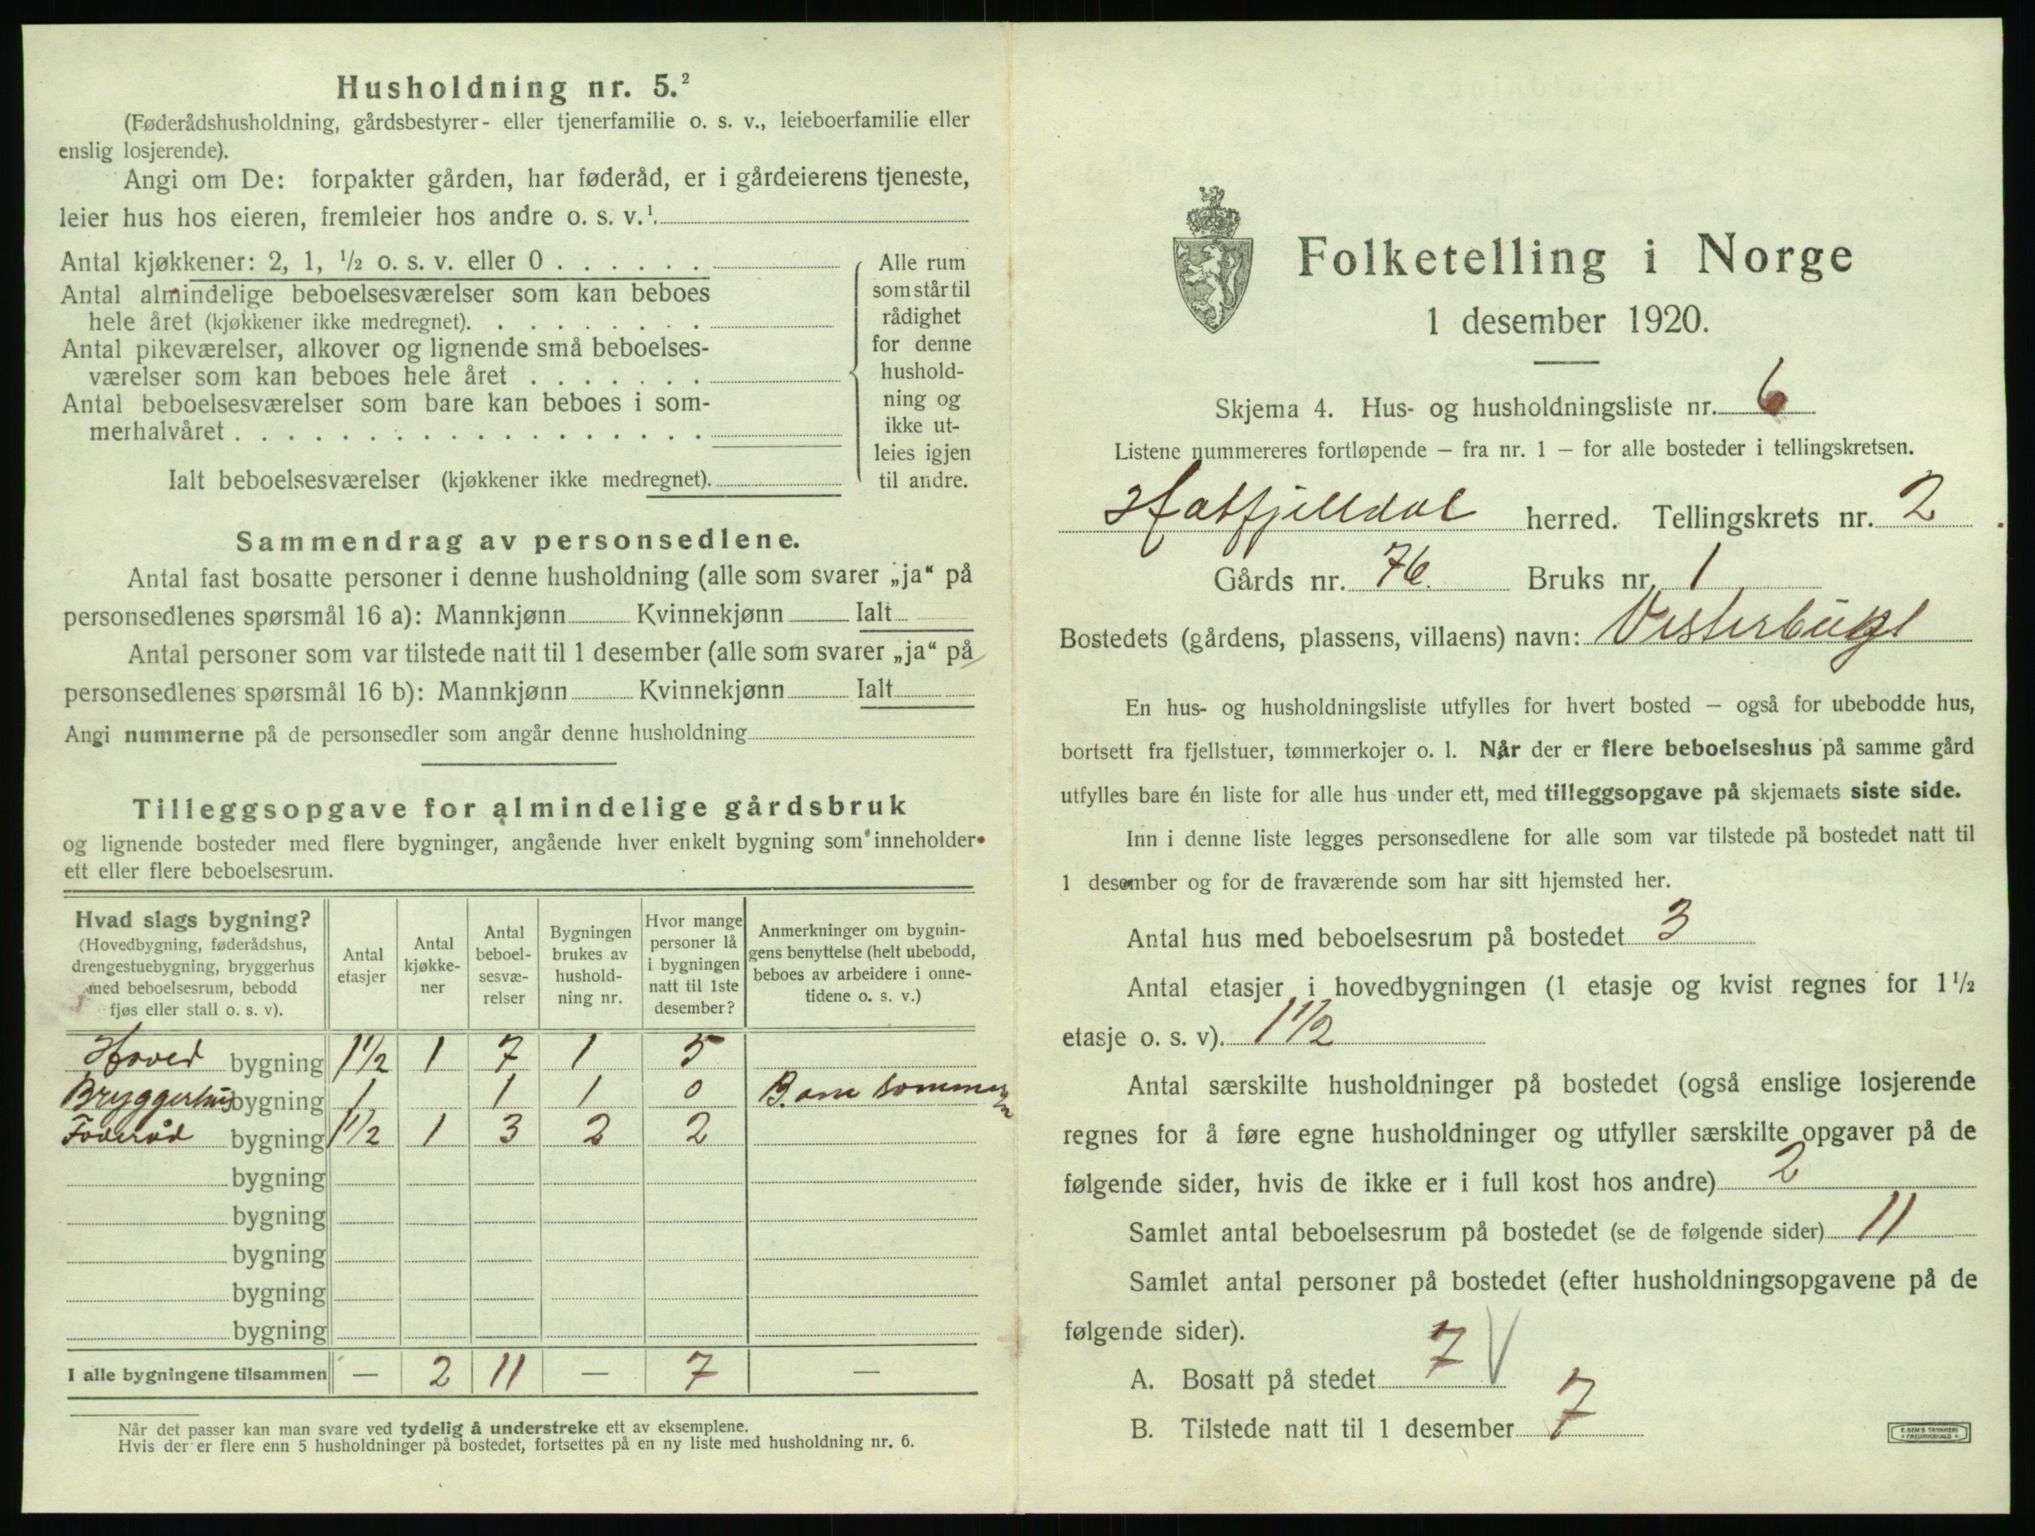 Husholdning nr. 5.²
(Føderådshusholdning, gårdsbestyrer- eller tjenerfamilie o. s. v., leieboerfamilie eller
enslig losjerende).
Angi om De: forpakter gården, har føderåd, er i gårdeierens tjeneste,
leier hus hos eieren, fremleier hos andre o. s. v.¹
Antal kjøkkener: 2, 1, ½ o. s. v. eller 0 . . . . . .
Antal almindelige beboelsesværelser som kan beboes
hele året (kjøkkener ikke medregnet). . . . . . . . .
Antal pikeværelser, alkover og lignende små beboelses-
værelser som kan beboes hele året . . . . . . .
Antal beboelsesværelser som bare kan beboes i som-
merhalvåret . . . . . . . . . . . . . . . . . .
Ialt beboelsesværelser (kjøkkener ikke medregnet).
Alle rum
som står til
rådighet
for denne
hushold-
ning og
ikke ut-
leies igjen
til andre.
Sammendrag av personsedlene.
Antal fast bosatte personer i denne husholdning (alle som svarer „ja“ på
personsedlenes spørsmål 16 a): Mannkjønn Kvinnekjønn Ialt
Antal personer som var tilstede natt til 1 desember (alle som svarer „ja“ på
personsedlenes spørsmål 16 b): Mannkjønn Kvinnekjønn Ialt
Angi nummerne på de personsedler som angår denne husholdning
Tilleggsopgave for almindelige gårdsbruk
og lignende bosteder med flere bygninger, angående hver enkelt bygning som inneholder
ett eller flere beboelsesrum.
Hvad slags bygning?
(Hovedbygning, føderådshus,
drengestuebygning, bryggerhus
med beboelsesrum, bebodd
fjøs eller stall o. s. v).
Antal
etasjer
Antal
kjøkke-
ner
Antal
beboel-
sesvæ-
relser
Bygningen
brukes av
hushold-
ning nr.
Hvor mange
personer lå
i bygningen
natt til 1ste
desember?
Anmerkninger om bygnin-
gens benyttelse (helt ubebodd,
beboes av arbeidere i onne-
tidene o. s. v.)
Hoved bygning 1½ 1 7 1 5
Bryggerhus bygning 1 1 1 0
Føderåd bygning 1½ 1 3 2 2
bygning
bygning
bygning
bygning
bygning
I alle bygningene tilsammen — 2 11 — 7 —
Når det passer kan man svare ved tydelig å understreke ett av eksemplene.
Hvis der er flere enn 5 husholdninger på bostedet, fortsettes på en ny liste med husholdning nr. 6.
Folketelling i Norge
1 desember 1920.
Skjema 4. Hus- og husholdningsliste nr. 6
Listene nummereres fortløpende – fra nr. 1 – for alle bosteder i tellingskretsen.
Hatfjelldal herred. Tellingskrets nr. 2
Gårds nr. 76 Bruks nr. 1
Bostedets (gårdens, plassens, villaens) navn:
En hus- og husholdningsliste utfylles for hvert bosted – også for ubebodde hus,
bortsett fra fjellstuer, tømmerkojer o. l. Når der er flere beboelseshus på samme gård
utfylles bare én liste for alle hus under ett, med tilleggsopgave på skjemaets siste side.
Inn i denne liste legges personsedlene for alle som var tilstede på bostedet natt til
1 desember og for de fraværende som har sitt hjemsted her.
Antal hus med beboelsesrum på bostedet 3
Antal etasjer i hovedbygningen (1 etasje og kvist regnes for 1½
etasje o. s. v). 1½
Antal særskilte husholdninger på bostedet (også enslige losjerende
regnes for å føre egne husholdninger og utfyller særskilte opgaver på de
følgende sider, hvis de ikke er i full kost hos andre) 2
Samlet antal beboelsesrum på bostedet (se de følgende sider) 11
Samlet antal personer på bostedet (efter husholdningsopgavene på de
følgende sider).
A. Bosatt på stedet 7
B. Tilstede natt til 1 desember 7
E. SEM'S TRYKKERI
FREDRIKSHALD